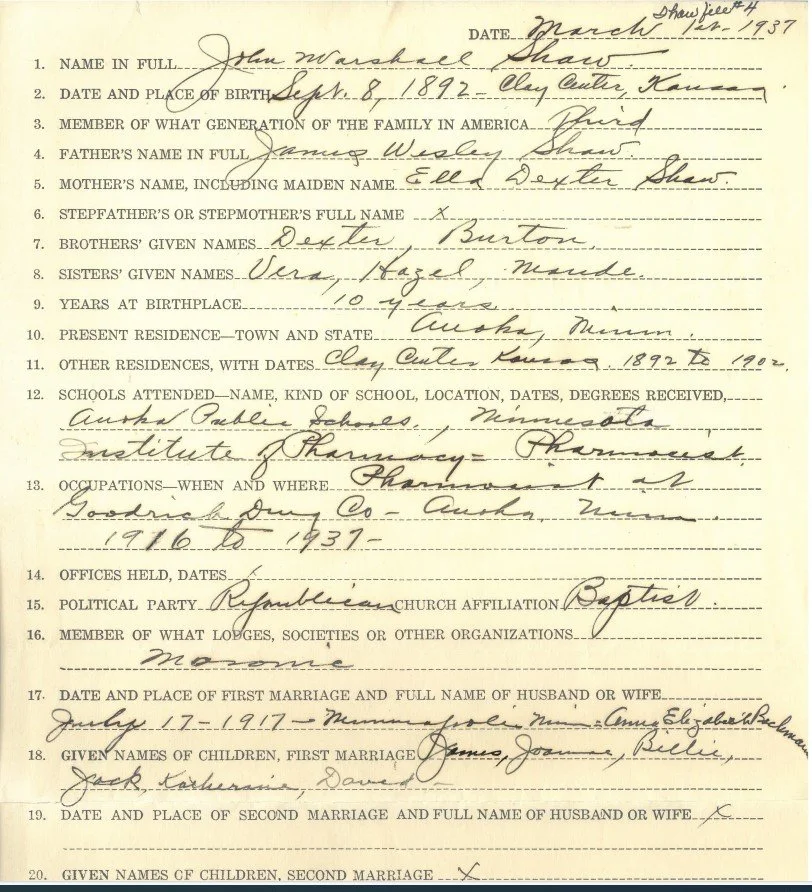 Shaw file #4
DATE March 1st - 1937
1. NAME IN FULL John Marshall Shaw.
2. DATE AND PLACE OF BIRTH Sept. 8, 1892 - Clay Center, Kansas.
3. MEMBER OF WHAT GENERATION OF THE FAMILY IN AMERICA Third
4. FATHER'S NAME IN FULL James Wesley Shaw.
5. MOTHER'S NAME, INCLUDING MAIDEN NAME Ella Dexter Shaw.
6. STEPFATHER'S OR STEPMOTHER'S FULL NAME x
7. BROTHERS' GIVEN NAMES Dexter, Burton.
8. SISTERS' GIVEN NAMES Vera, Hazel, Maude.
9. YEARS AT BIRTHPLACE 10 years
10. PRESENT RESIDENCE—TOWN AND STATE Anoka, Minn.
11. OTHER RESIDENCES, WITH DATES Clay Center Kansas. 1892 to 1902.
12. SCHOOLS ATTENDED—NAME, KIND OF SCHOOL, LOCATION, DATES, DEGREES RECEIVED,
Anoka Public Schools, Minnesota
Institute of Pharmacy - Pharmacist.
13. OCCUPATIONS—WHEN AND WHERE Pharmacist at
Goodrich Drug Co - Anoka, Minn.
1916 to 1937-
14. OFFICES HELD, DATES x
15. POLITICAL PARTY Republican CHURCH AFFILIATION Baptist.
16. MEMBER OF WHAT LODGES, SOCIETIES OR OTHER ORGANIZATIONS
Masonic
17. DATE AND PLACE OF FIRST MARRIAGE AND FULL NAME OF HUSBAND OR WIFE
July 17-1917 - Minneapolis Minn - Anna Elizabeth
18. GIVEN NAMES OF CHILDREN, FIRST MARRIAGE James, Joanne, Billie,
Jack, Katherine, David -
19. DATE AND PLACE OF SECOND MARRIAGE AND FULL NAME OF HUSBAND OR WIFE x
20. GIVEN NAMES OF CHILDREN, SECOND MARRIAGE x